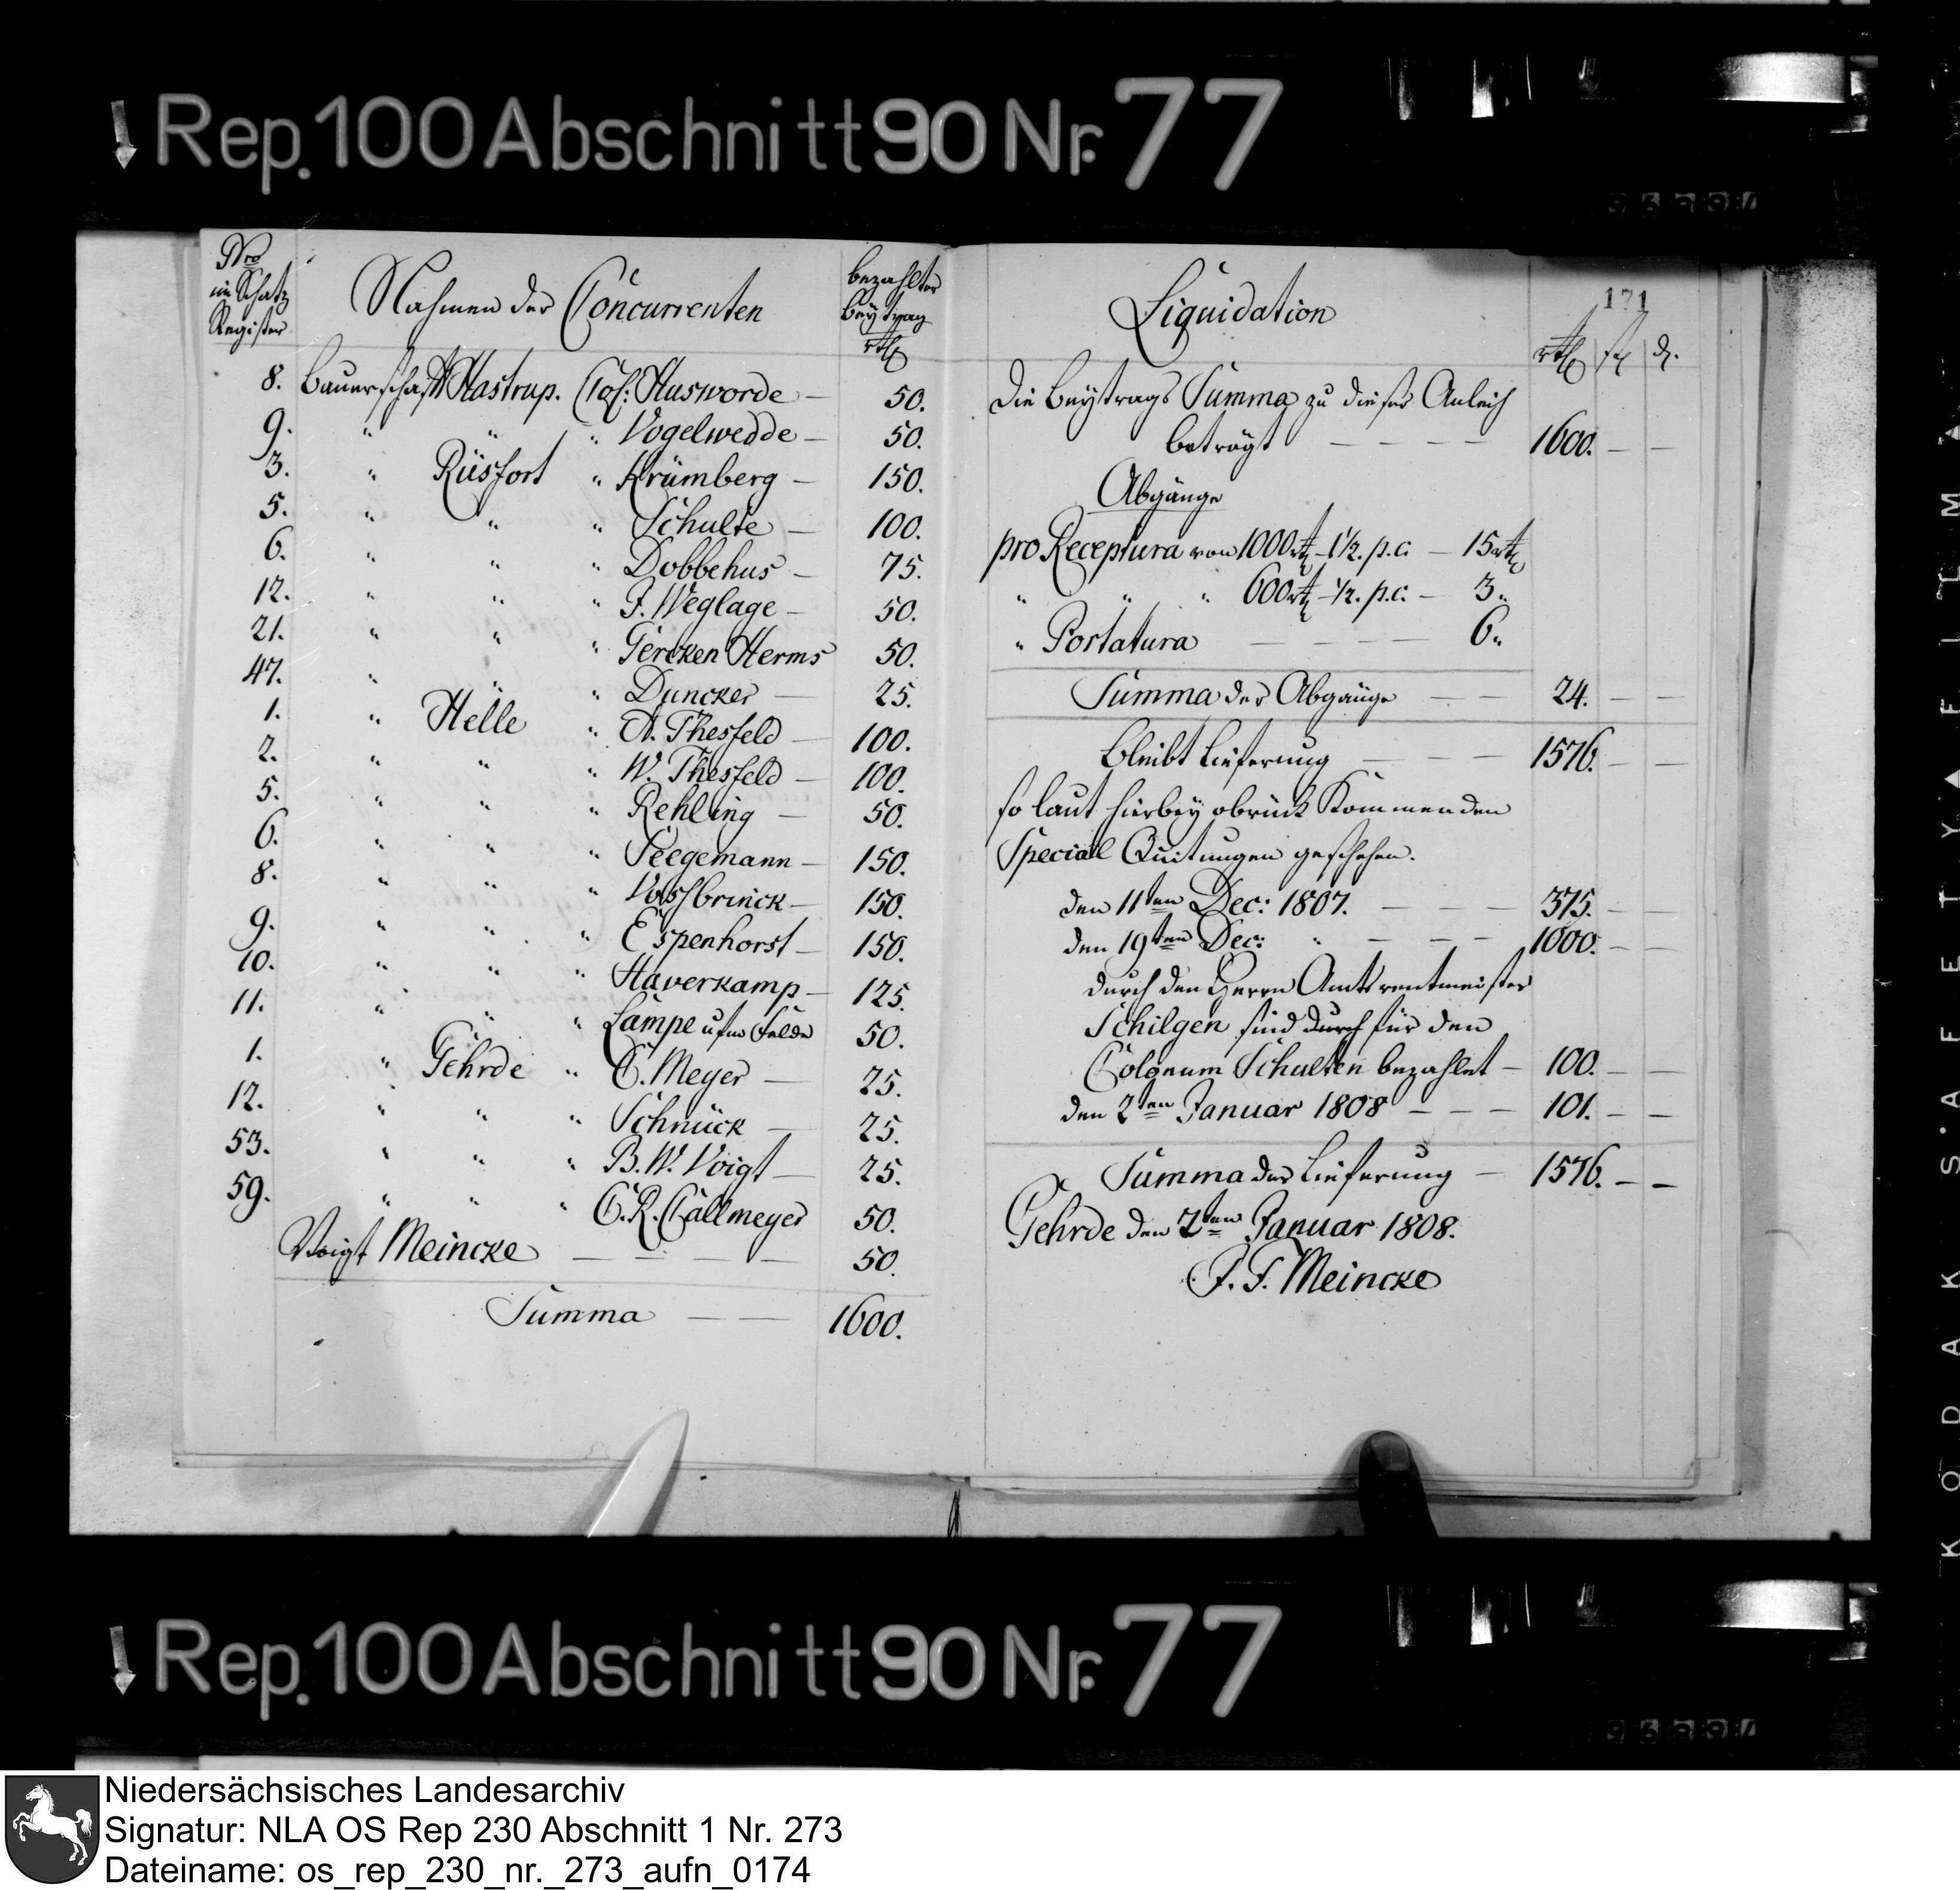 Rep. 100 Abschnitt 90 Nr. 77
Nro
im Schatz
Register
Nahmen der Concurrenten
bezahlter
Beytrag
rtl
8. Bauerschaft Hastrup. Col: Husworde — 50.
9. " " " Vogelwedde — 50.
3. " Rüsfort " Krümberg — 150.
5. " " " Schulte — 100.
6. " " " Dobbehus — 75.
12. " " " J. Weglage — 50.
21. " " " Gercken Herms 50.
47. " " " Duncker — 25.
1. " Helle " A. Thesfeld — 100.
2. " " " W. Thesfeld — 100.
5. " " " Rehling — 50.
6. " " " Seegemann — 150.
8. " " " Vossbrinck — 150.
9. " " " Espenhorst — 150.
10. " " " Haverkamp — 125.
11. " " " Lampe ufm Felde 50.
1. " Gehrde " C. Meyer — 25.
12. " " " Schnück — 25.
53. " " " B. W. Voigt — 25.
59. " " " C. R. Callmeyer 50.
Voigt Meincke — — — — 50.
Summa — — 1600.
171
Liquidation
rtl ß d.
Die Beytrags Summa zu dieser Anleih
beträgt — — — — 1600. — —
Abgänge
pro Receptura von 1000 rt — 1 1/2. p.c. — 15 rt
" " " 600 rt — 1/2. p.c. — 3 "
" Portatura — — — — 6 "
Summa der Abgänge — — 24. — —
Bleibt Lieferung — — — 1576. — —
so laut hierbey Kommenden
Special Quitungen geschehen.
den 11ten Dec: 1807. — — — 375. — —
den 19ten Dec: " — — — 1000. — —
durch den Herrn Amtsrentmeister
Schilgen sind durch für den
Colonum Schulten bezahlet — 100. — —
den 2ten Januar 1808 — — — 101. — —
Summa der Lieferung — 1576. — —
Gehrde den 2ten Januar 1808.
J. F. Meincke
KODAK SAFETY FILM
Rep. 100 Abschnitt 90 Nr. 77
Niedersächsisches Landesarchiv
Signatur: NLA OS Rep 230 Abschnitt 1 Nr. 273
Dateiname: os_rep_230_nr._273_aufn_0174